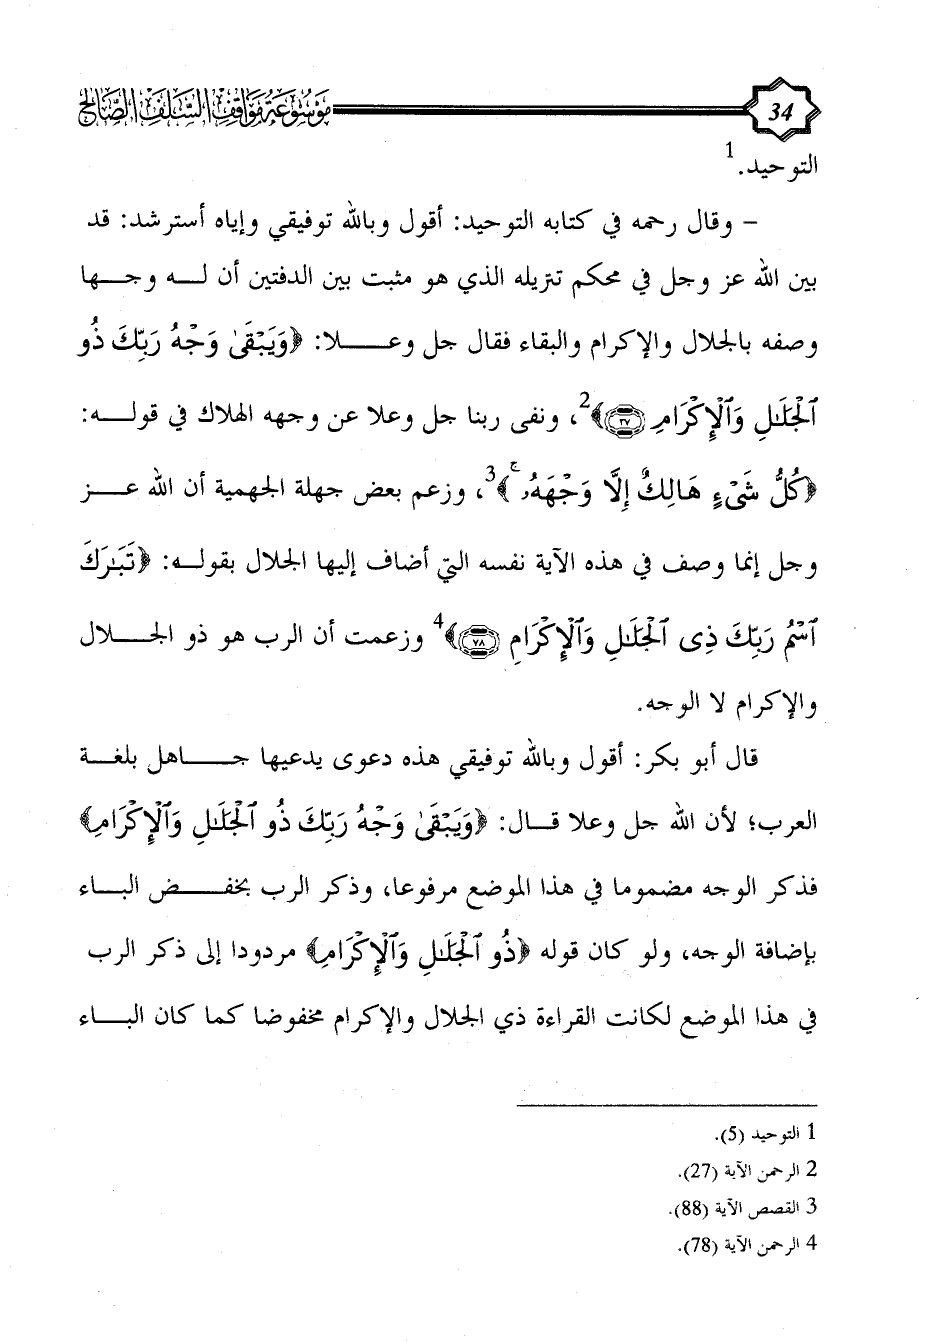 34 موسوعة مواقف السلف الصالح
التوحيد.1
- وقال رحمه في كتابه التوحيد: أقول وبالله توفيقي وإياه أسترشد: قد
بين الله عز وجل في محكم تنزيله الذي هو مثبت بين الدفتين أن لـه وجـها
وصفه بالجلال والإكرام والبقاء فقال جل وعـلا: ﴿وَيَبْقَىٰ وَجْهُ رَبِّكَ ذُو
ٱلْجَلَٰلِ وَٱلْإِكْرَامِ ۝٢٧﴾2، ونفى ربنا جل وعلا عن وجهه الهلاك في قولـه:
﴿كُلُّ شَىْءٍ هَالِكٌ إِلَّا وَجْهَهُۥ ۚ﴾3، وزعم بعض جهلة الجهمية أن الله عـز
وجل إنما وصف في هذه الآية نفسه التي أضاف إليها الجلال بقولـه: ﴿تَبَٰرَكَ
ٱسْمُ رَبِّكَ ذِى ٱلْجَلَٰلِ وَٱلْإِكْرَامِ ۝٧٨﴾4 وزعمت أن الرب هو ذو الجـلال
والإكرام لا الوجه.
قال أبو بكر: أقول وبالله توفيقي هذه دعوى يدعيها جـاهل بلغـة
العرب؛ لأن الله جل وعلا قـال: ﴿وَيَبْقَىٰ وَجْهُ رَبِّكَ ذُو ٱلْجَلَٰلِ وَٱلْإِكْرَامِ﴾
فذكر الوجه مضموما في هذا الموضع مرفوعا، وذكر الرب بخفـض البـاء
بإضافة الوجه، ولو كان قوله ﴿ذُو ٱلْجَلَٰلِ وَٱلْإِكْرَامِ﴾ مردودا إلى ذكر الرب
في هذا الموضع لكانت القراءة ذي الجلال والإكرام مخفوضا كما كان البـاء
1 التوحيد (5).
2 الرحمن الآية (27).
3 القصص الآية (88).
4 الرحمن الآية (78).